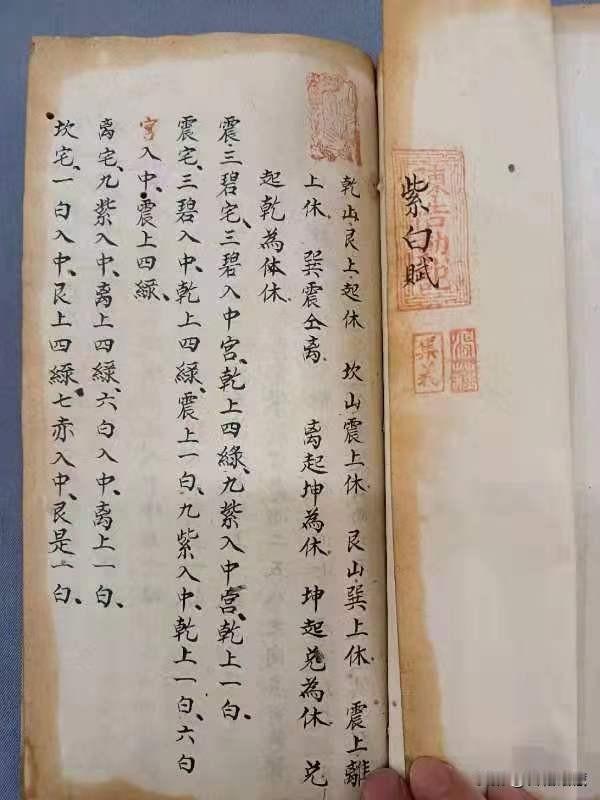 紫白賦
乾山艮上起休 坎山震上休 艮山巽上休 震上離
上休 巽震仝离 离起坤為休 坤起兑為休 兑
起乾為体休
震三碧宅、三碧入中宮、乾上四綠、九紫入中宮、乾上一白、
震宅、三碧入中、乾上四綠、震上一白、九紫入中、乾上一白、六白
宮入中、震上四綠、
离宅、九紫入中、离上四綠、六白入中、离上一白、
坎宅、一白入中、艮上四綠、七赤入中、艮是一白、